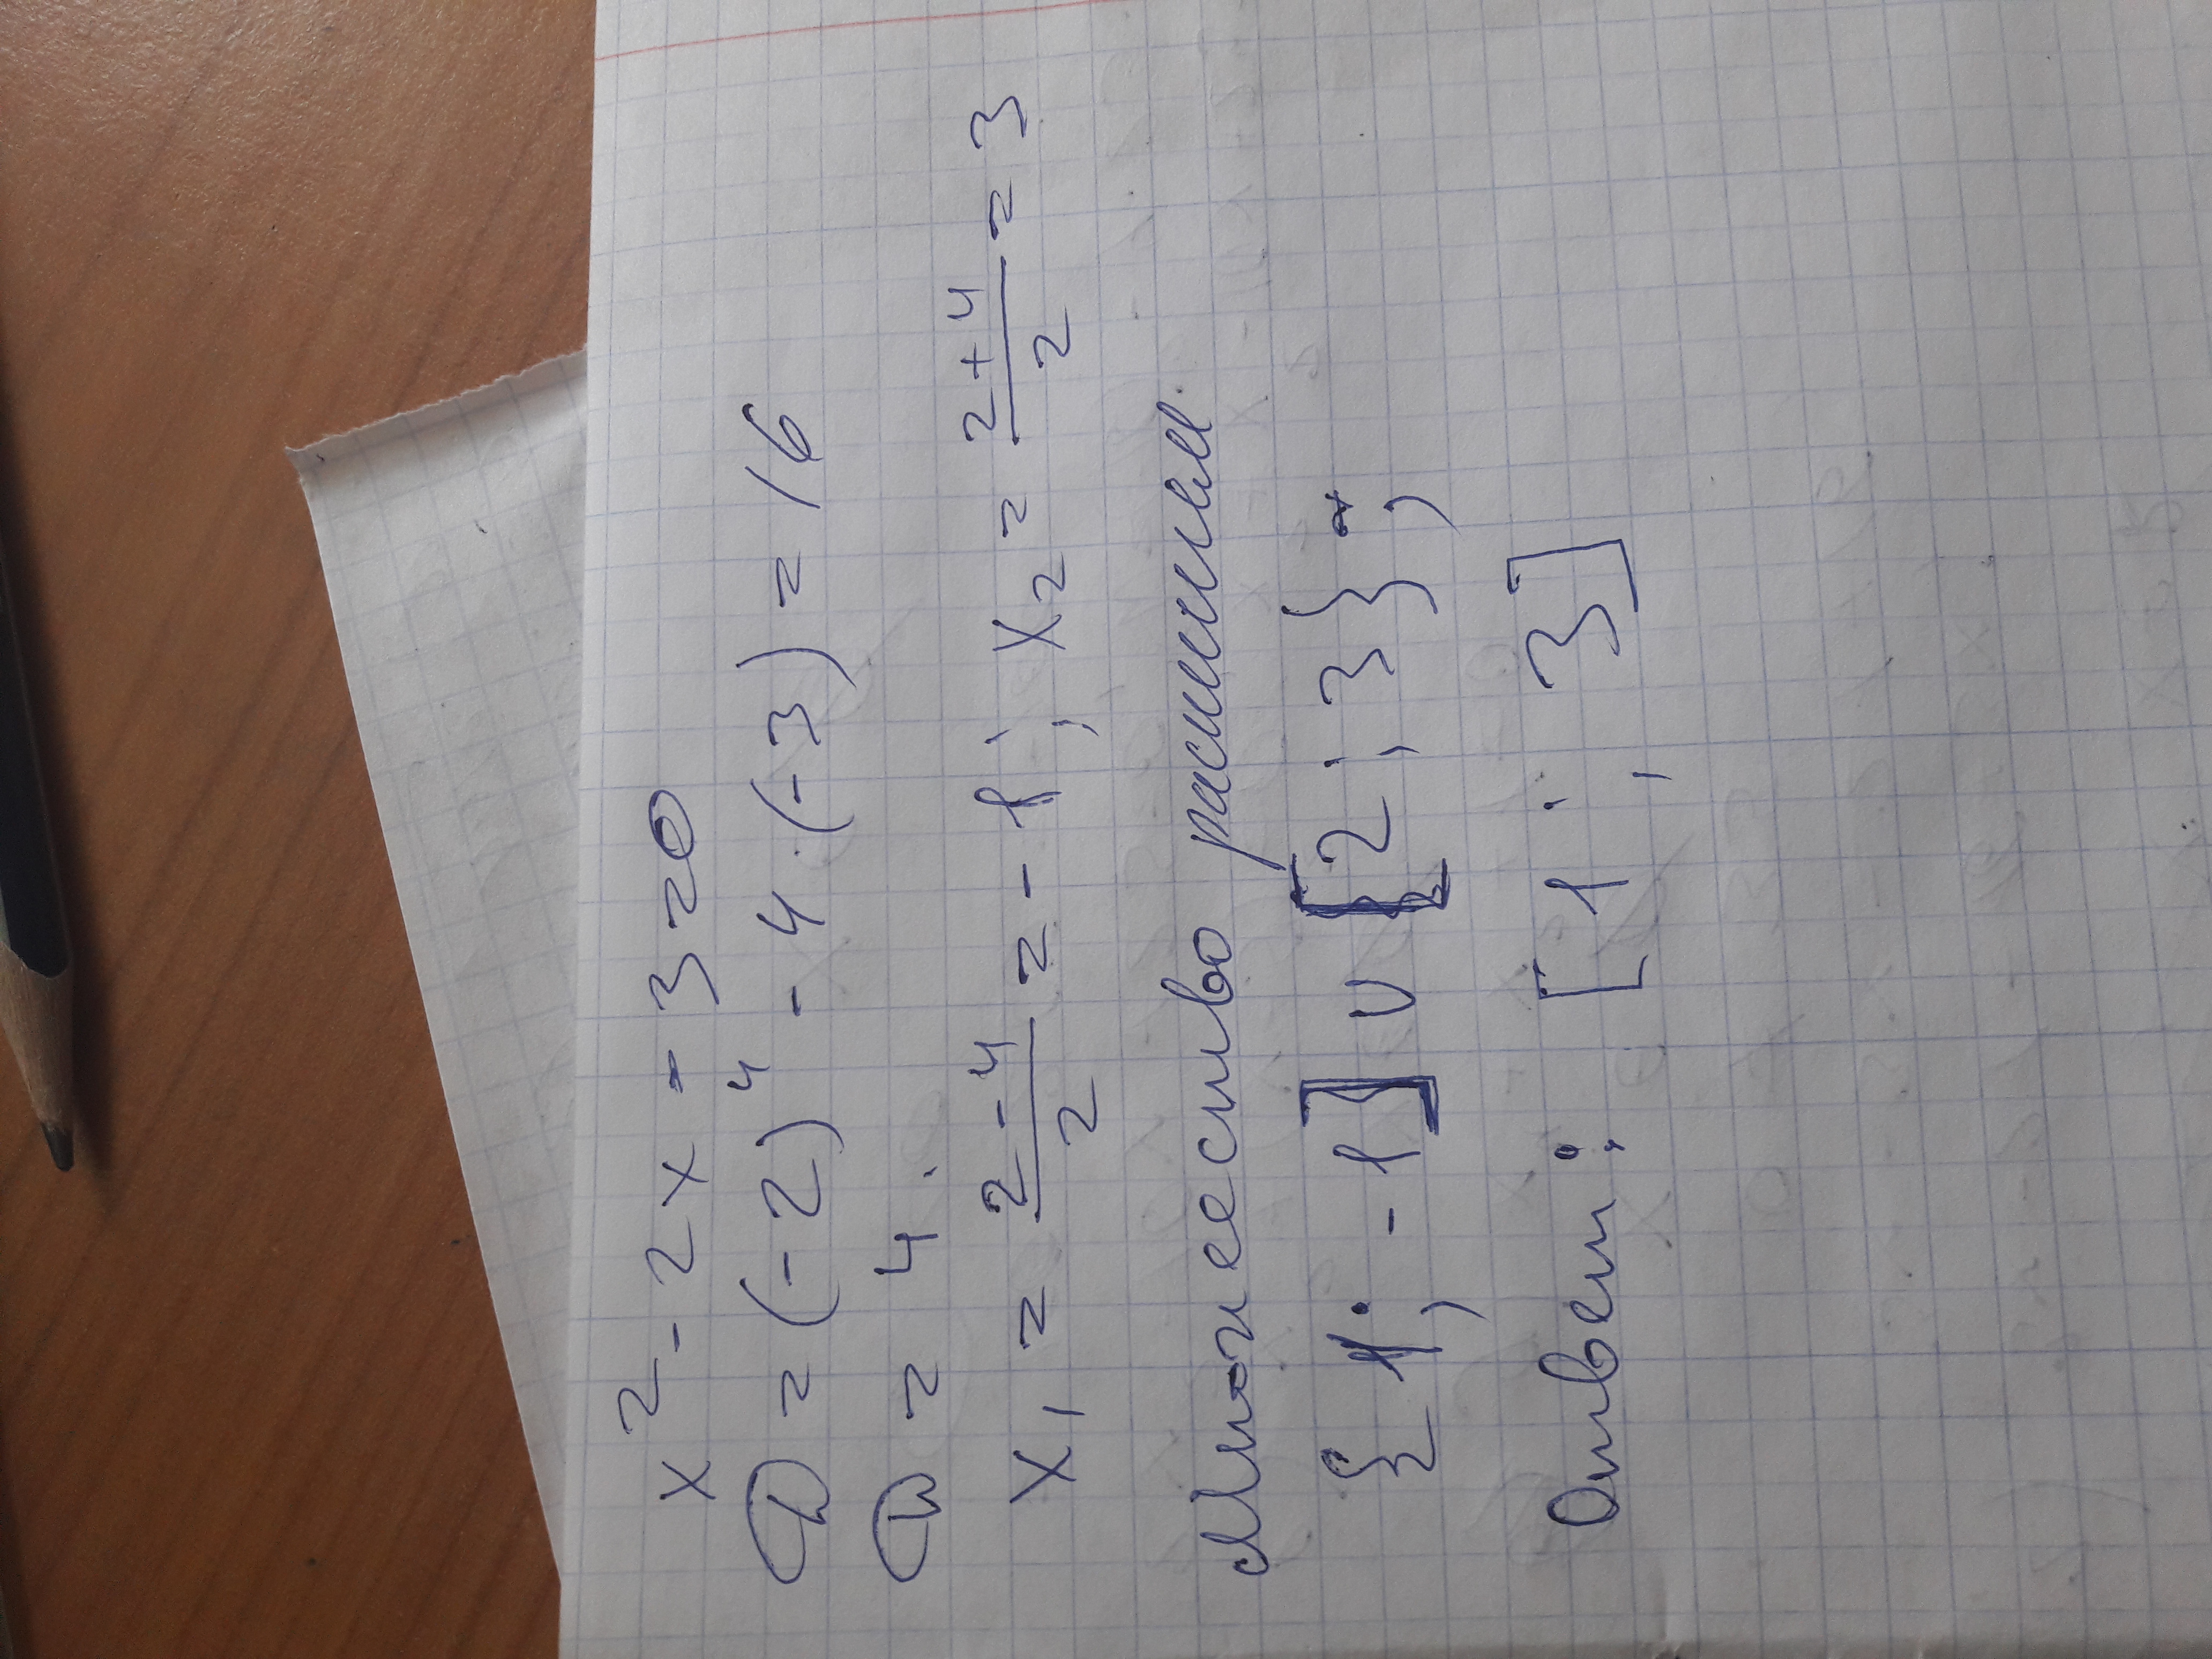 x² - 2x - 3 = 0
D = (-2)⁴ - 4·(-3) = 16
D = 4.
x₁ = (2-4)/2 = -1; x₂ = (2+4)/2 = 3
Множество
{1; -1] ∪ [2; 3};
Ответ: [1; 3]